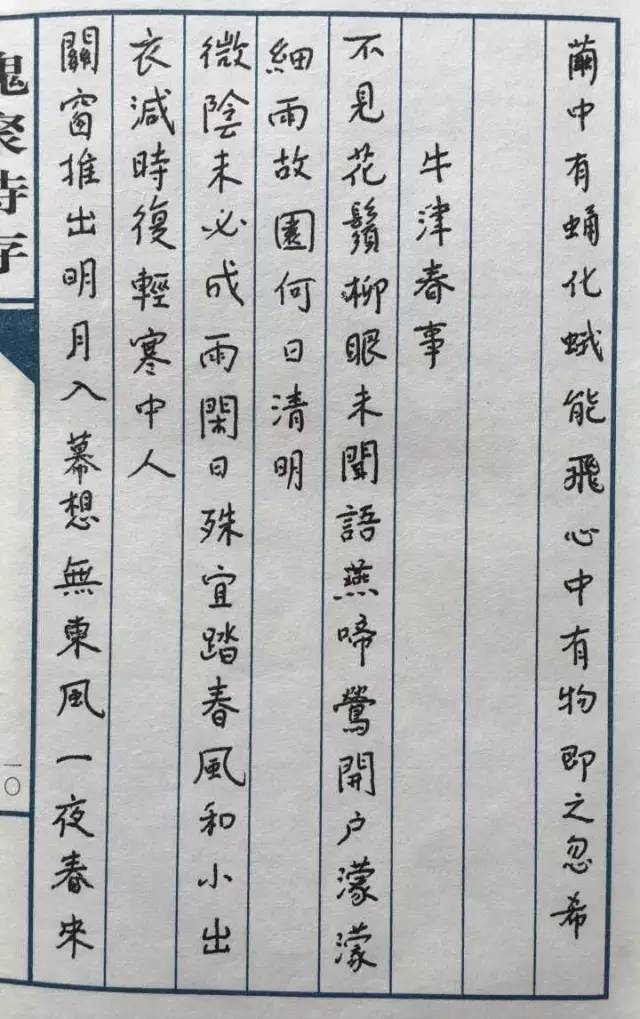 繭中有蛹化蛾能飛心中有物即之忽希
牛津春事
不見花鬚柳眼未聞語燕啼鶯開户濛濛
細雨故園何日清明
微陰未必成雨閑日殊宜踏春風和小出
衣減時復輕寒中人
關窗推出明月入幕想無東風一夜春来
槐聚詩存
一〇